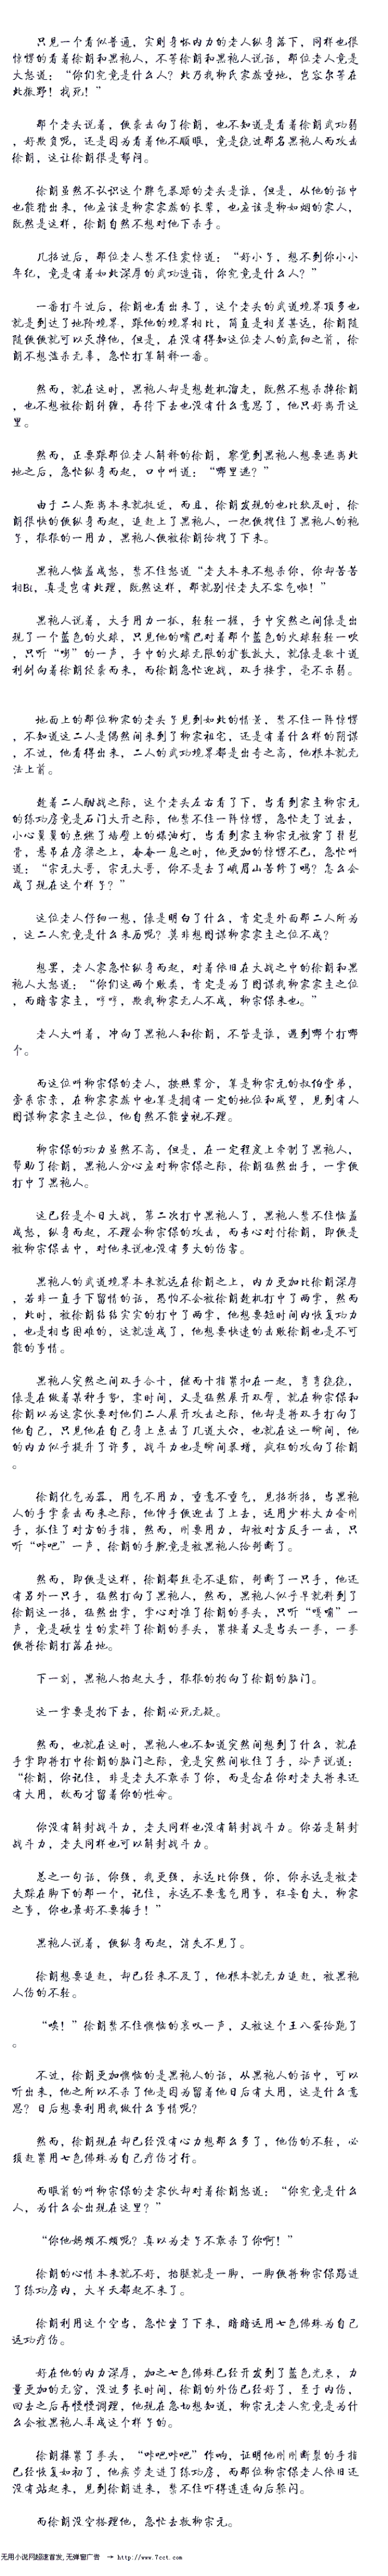 只见一个看似普通，实则身怀内力的老人纵身落下，同样也很
惊愕的看着徐朗和黑袍人，不等徐朗和黑袍人说话，那位老人竟是
大怒道：“你们究竟是什么人？此乃我柳氏家族重地，岂容尔等在
此撒野！找死！”
那个老头说着，便袭击向了徐朗，也不知道是看着徐朗武功弱
，好欺负呢，还是因为看着他不顺眼，竟是绕过那名黑袍人而攻击
徐朗，这让徐朗很是郁闷。
徐朗虽然不认识这个脾气暴躁的老头是谁，但是，从他的话中
也能猜出来，他应该是柳家家族的长辈，也应该是柳如烟的家人，
既然是这样，徐朗自然不想对他下杀手。
几招过后，那位老人禁不住震惊道：“好小子，想不到你小小
年纪，竟是有着如此深厚的武功造诣，你究竟是什么人？”
一番打斗过后，徐朗也看出来了，这个老头的武道境界顶多也
就是到达了地阶境界，跟他的境界相比，简直是相差甚远，徐朗随
随便便就可以灭掉他，但是，在没有得知这位老人的底细之前，徐
朗不想滥杀无辜，急忙打算解释一番。
然而，就在这时，黑袍人却是想趁机溜走，既然不想杀掉徐朗
，也不想被徐朗纠缠，再待下去也没有什么意思了，他只好离开这
里。
然而，正要跟那位老人解释的徐朗，察觉到黑袍人想要逃离此
地之后，急忙纵身而起，口中叫道：“哪里逃？”
由于二人距离本来就挺近，而且，徐朗发现的也比较及时，徐
朗很快的便纵身而起，追赶上了黑袍人，一把便拽住了黑袍人的袍
子，狠狠的一用力，黑袍人便被徐朗给拽了下来。
黑袍人恼羞成怒，禁不住怒道“老夫本来不想杀你，你却苦苦
相Bi，真是岂有此理，既然这样，那就别怪老夫不客气啦！”
黑袍人说着，大手用力一抓，轻轻一握，手中突然之间像是出
现了一个蓝色的火球，只见他的嘴巴对着那个蓝色的火球轻轻一吹
，只听“嘭”的一声，手中的火球无限的扩散放大，就像是数十道
利剑向着徐朗径袭而来，而徐朗急忙迎战，双手接掌，毫不示弱。
地面上的那位柳家的老头子见到如此的情景，禁不住一阵惊愕
，不知道这二人是偶然间来到了柳家祖宅，还是有着什么样的阴谋
，不过，他看得出来，二人的武功境界都是出奇之高，他根本就无
法上前。
趁着二人酣战之际，这个老头左右看了下，当看到家主柳宗元
的练功房竟是石门大开之际，他禁不住一阵惊愕，急忙走了过去，
小心翼翼的点燃了墙壁上的煤油灯，当看到家主柳宗元被穿了琵琶
骨，悬吊在房梁之上，奄奄一息之时，他更加的惊愕不已，急忙叫
道：“宗元大哥，宗元大哥，你不是去了峨眉山苦修了吗？怎么会
成了现在这个样子？”
这位老人仔细一想，像是明白了什么，肯定是外面那二人所为
，这二人究竟是什么来历呢？莫非想图谋柳家家主之位不成？
想罢，老人家急忙纵身而起，对着依旧在大战之中的徐朗和黑
袍人大怒道：“你们这两个败类，肯定是为了图谋我柳家家主之位
，而暗害家主，哼哼，欺我柳家无人不成，柳宗保来也。”
老人大叫着，冲向了黑袍人和徐朗，不管是谁，遇到哪个打哪
个。
而这位叫柳宗保的老人，按照辈分，算是柳宗元的叔伯堂弟，
旁系宗亲，在柳家家族中也算是拥有一定的地位和威望，见到有人
图谋柳家家主之位，他自然不能坐视不理。
柳宗保的功力虽然不高，但是，在一定程度上牵制了黑袍人，
帮助了徐朗，黑袍人分心应对柳宗保之际，徐朗猛然出手，一掌便
打中了黑袍人。
这已经是今日大战，第二次打中黑袍人了，黑袍人禁不住恼羞
成怒，纵身而起，不理会柳宗保的攻击，而专心对付徐朗，即便是
被柳宗保击中，对他来说也没有多大的伤害。
黑袍人的武道境界本来就远在徐朗之上，内力更加比徐朗深厚
，若非一直手下留情的话，恐怕不会被徐朗趁机打中了两掌，然而
，此时，被徐朗结结实实的打中了两掌，他想要短时间内恢复功力
，也是相当困难的，这就造成了，他想要快速的击败徐朗也是不可
能的事情。
黑袍人突然之间双手合十，继而十指紧扣在一起，弯弯绕绕，
像是在做着某种手势，霎时间，又是猛然展开双臂，就在柳宗保和
徐朗以为这家伙要对他们二人展开攻击之际，他却是将双手打向了
他自己，只见他在自己身上点击了几道大穴，也就在这一瞬间，他
的内力似乎提升了许多，战斗力也是瞬间暴增，疯狂的攻向了徐朗
。
徐朗化气为器，用气不用力，重意不重气，见招拆招，当黑袍
人的手掌袭击而来之际，他伸手便迎击了上去，运用少林大力金刚
手，抓住了对方的手指，然而，刚要用力，却被对方反手一击，只
听“咔吧”一声，徐朗的手腕竟是被黑袍人给掰断了。
然而，即便是这样，徐朗都丝毫不退怯，掰断了一只手，他还
有另外一只手，猛然打向了黑袍人，然而，黑袍人似乎早就料到了
徐朗这一招，猛然出掌，掌心对准了徐朗的拳头，只听“噗嗤”一
声，竟是硬生生的震碎了徐朗的拳头，紧接着又是当头一拳，一拳
便将徐朗打落在地。
下一刻，黑袍人抬起大手，狠狠的拍向了徐朗的脑门。
这一掌要是拍下去，徐朗必死无疑。
然而，也就在这时，黑袍人也不知道突然间想到了什么，就在
手掌即将打中徐朗的脑门之际，竟是突然间收住了手，冷声说道：
“徐朗，你记住，非是老夫不敢杀了你，而是念在你对老夫将来还
有大用，故而才留着你的性命。
你没有解封战斗力，老夫同样也没有解封战斗力。你若是解封
战斗力，老夫同样也可以解封战斗力。
总之一句话，你强，我更强，永远比你强，你，你永远是被老
夫踩在脚下的那一个，记住，永远不要意气用事，狂妄自大，柳家
之事，你也最好不要插手！”
黑袍人说着，便纵身而起，消失不见了。
徐朗想要追赶，却已经来不及了，他根本就无力追赶，被黑袍
人伤的不轻。
“唉！”徐朗禁不住懊恼的哀叹一声，又被这个王八蛋给跑了
。
不过，徐朗更加懊恼的是黑袍人的话，从黑袍人的话中，可以
听出来，他之所以不杀了他是因为留着他日后有大用，这是什么意
思？日后想要利用我做什么事情呢？
然而，徐朗现在却已经没有心力想那么多了，他伤的不轻，必
须赶紧用七色佛珠为自己疗伤才行。
而眼前的叫柳宗保的老家伙却对着徐朗怒道：“你究竟是什么
人，为什么会出现在这里？”
“你他妈烦不烦呢？真以为老子不敢杀了你啊！”
徐朗的心情本来就不好，抬腿就是一脚，一脚便将柳宗保踢进
了练功房内，大半天都起不来了。
徐朗利用这个空当，急忙坐了下来，暗暗运用七色佛珠为自己
运功疗伤。
好在他的内力深厚，加之七色佛珠已经开发到了蓝色光束，力
量更加的无穷，没过多长时间，徐朗的外伤已经好了，至于内伤，
回去之后再慢慢调理，他现在急切想知道，柳宗元老人究竟是为什
么会被黑袍人弄成这个样子的。
徐朗攥紧了拳头，“咔吧咔吧”作响，证明他刚刚断裂的手指
已经恢复如初了，他疾步走进了练功房，而那位柳宗保老人依旧还
没有站起来，见到徐朗进来，禁不住吓得连连向后躲闪。
而徐朗没空搭理他，急忙去救柳宗元。
无用小说网超速首发,无弹窗广告 → http://www.7cct.com